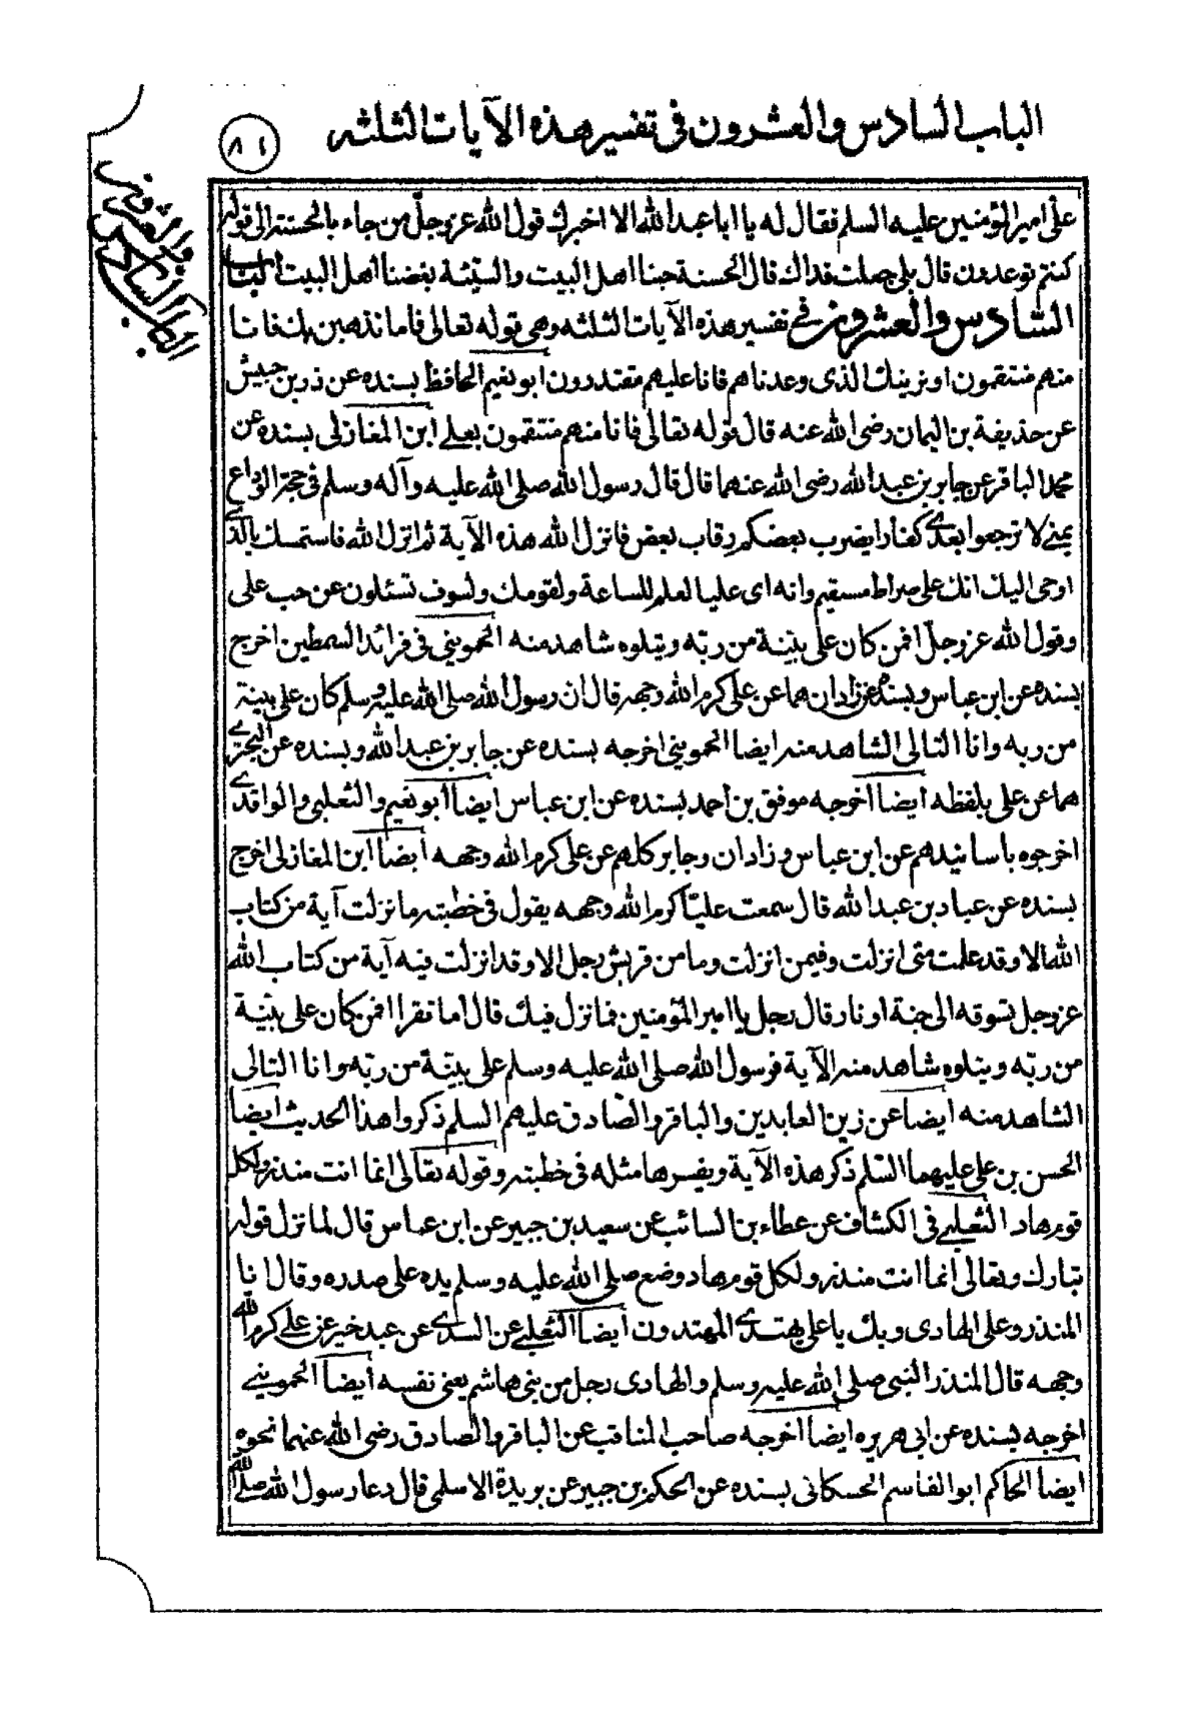 الباب السادس والعشرون فى تفسير هذه الآيات الثلثه
٨١
الباب السادس والعشرون
على امير المؤمنين عليه السلم فقال له يا ابا عبد الله الا اخبرك قول الله عز وجلّ من جاء بالحسنة الى قوله
كنتم توعدون قال بلى جعلت فداك قال الحسنة حبنا اهل البيت والسيّئة بغضنا اهل البيت الباب
السّادس والعشرون فے تفسير هذه الآيات الثلثه وهى قوله تعالى فاما نذهبن بك فانا
منهم منتقمون او نرينك الذى وعدناهم فانا عليهم مقتدرون ابو نعيم الحافظ بسنده عن زر بن حبيش
عن حذيفة بن اليمان رضى الله عنه قال قوله تعالى فانا منهم منتقمون بعلے ابن المغازلى بسنده عن
محمد الباقر عن جابر بن عبد الله رضى الله عنهما قال قال رسول الله صلى الله عليه وآله وسلم فى حجة الوداع
بمنے لا ترجعوا بعدے كفارا يضرب بعضكم رقاب بعض فانزل الله هذه الآية ثم انزل الله فاستمسك بالذے
اوحى اليك انك على صراط مستقيم وانه اى عليا لعلم للساعة ولقومك ولسوف تسئلون عن حب على
وقول الله عز وجلّ افمن كان على بيّنة من ربّه ويتلوه شاهد منه الحموينى فى فرائد السمطين اخرج
بسنده عن ابن عباس وبسنده عن زاذان هما عن على كرم الله وجهه قال ان رسول الله صلى الله عليه وسلم كان على بينة
من ربه وانا التالى الشاهد منه ايضا الحموينى اخرجه بسنده عن جابر بن عبد الله وبسنده عن البحترے
هما عن على بلفظه ايضا اخرجه موفق بن احمد بسنده عن ابن عباس ايضا ابو نعيم والثعلبى والواقدے
اخرجوه باسانيدهم عن ابن عباس وزادان وجابر كلهم عن على كرم الله وجهه ايضا ابن المغازلى اخرج
بسنده عن عباد بن عبد الله قال سمعت عليّا كرم الله وجهه يقول فى خطبته ما نزلت آية من كتاب
الله الا وقد علمت متى انزلت وفيمن انزلت وما من قريش رجل الا وقد انزلت فيه آية من كتاب الله
عز وجل تسوقه الى جنة او نار قال رجل يا امير المؤمنين فما نزل فيك قال اما تقرا افمن كان على بيّنة
من ربّه ويتلوه شاهد منه الآية فرسول الله صلى الله عليه وسلم على بيّنة من ربّه وانا التالى
الشاهد منه ايضا عن زين العابدين والباقر والصّادق عليهم السلم ذكروا هذا الحديث ايضا
الحسن بن على عليهما السّلم ذكر هذه الآية ويفسرها مثله فى خطبته وقوله تعالى انما انت منذر ولكل
قوم هاد الثعلبے فى الكشاف عن عطاء بن السائب عن سعيد بن جبير عن ابن عباس قال لما نزل قوله
تبارك وتعالى انما انت منذر ولكل قوم هاد وضع صلى الله عليه وسلم يده على صدره وقال انا
المنذر وعلى الهادى وبك يا على يهتدے المهتدون ايضا الثعلبے عن السدے عن عبد خير عن علے كرم الله
وجهه قال المنذر النبى صلى الله عليه وسلم والهادى رجل من بنى هاشم يعنى نفسه ايضا الحموينے
اخرجه بسنده عن ابى هريره ايضا اخرجه صاحب المناقب عن الباقر والصادق رضى الله عنهما نحوه
ايضا الحاكم ابو القاسم الحسكانى بسنده عن الحكم بن جبير عن بريدة الاسلمى قال دعا رسول الله صلى الله